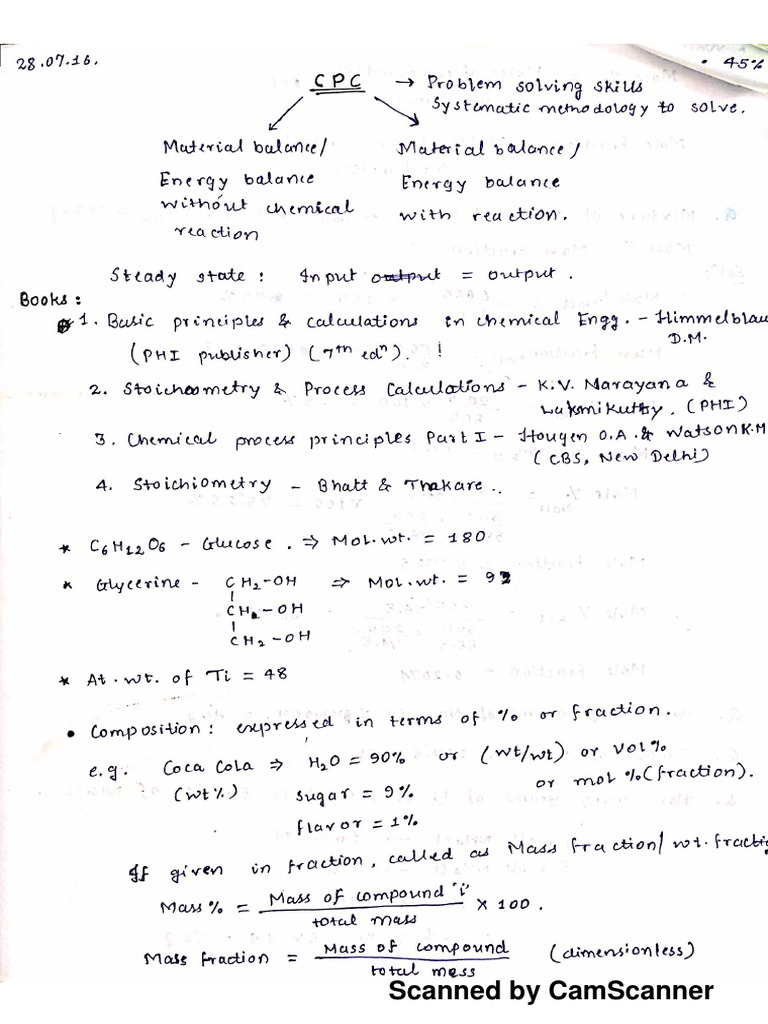 28.07.16.
• 45%
CPC → Problem solving skills
Systematic methodology to solve.
Material balance/
Energy balance
without chemical
reaction
Material balance/
Energy balance
with reaction.
Steady state : Input output = output.
Books :
1. Basic principles & calculations in chemical Engg. - Himmelblau
D.M.
(PHI publisher) (7th edn). !
2. Stoicheometry & Process Calculations - K.V. Narayana &
Lakmikuthy. (PHI)
3. Chemical process principles Part I - Hougen O.A. & Watson K.M
(CBS, New Delhi)
4. Stoichiometry - Bhatt & Thakare..
* C6H12O6 - Glucose. ⇒ Mol.wt. = 180
* Glycerine - CH2-OH ⇒ Mol.wt. = 92
CH-OH
CH2-OH
* At.wt. of Ti = 48
• Composition : expressed in terms of % or fraction.
e.g. Coca Cola ⇒ H2O = 90% or (wt/wt) or vol%
(wt%) sugar = 9% or mol %(fraction).
flavor = 1%
If given in fraction, called as Mass fraction/ wt. fractio
Mass % = Mass of compound 'i' / total mass × 100.
Mass fraction = Mass of compound / total mess (dimensionless)
Scanned by CamScanner